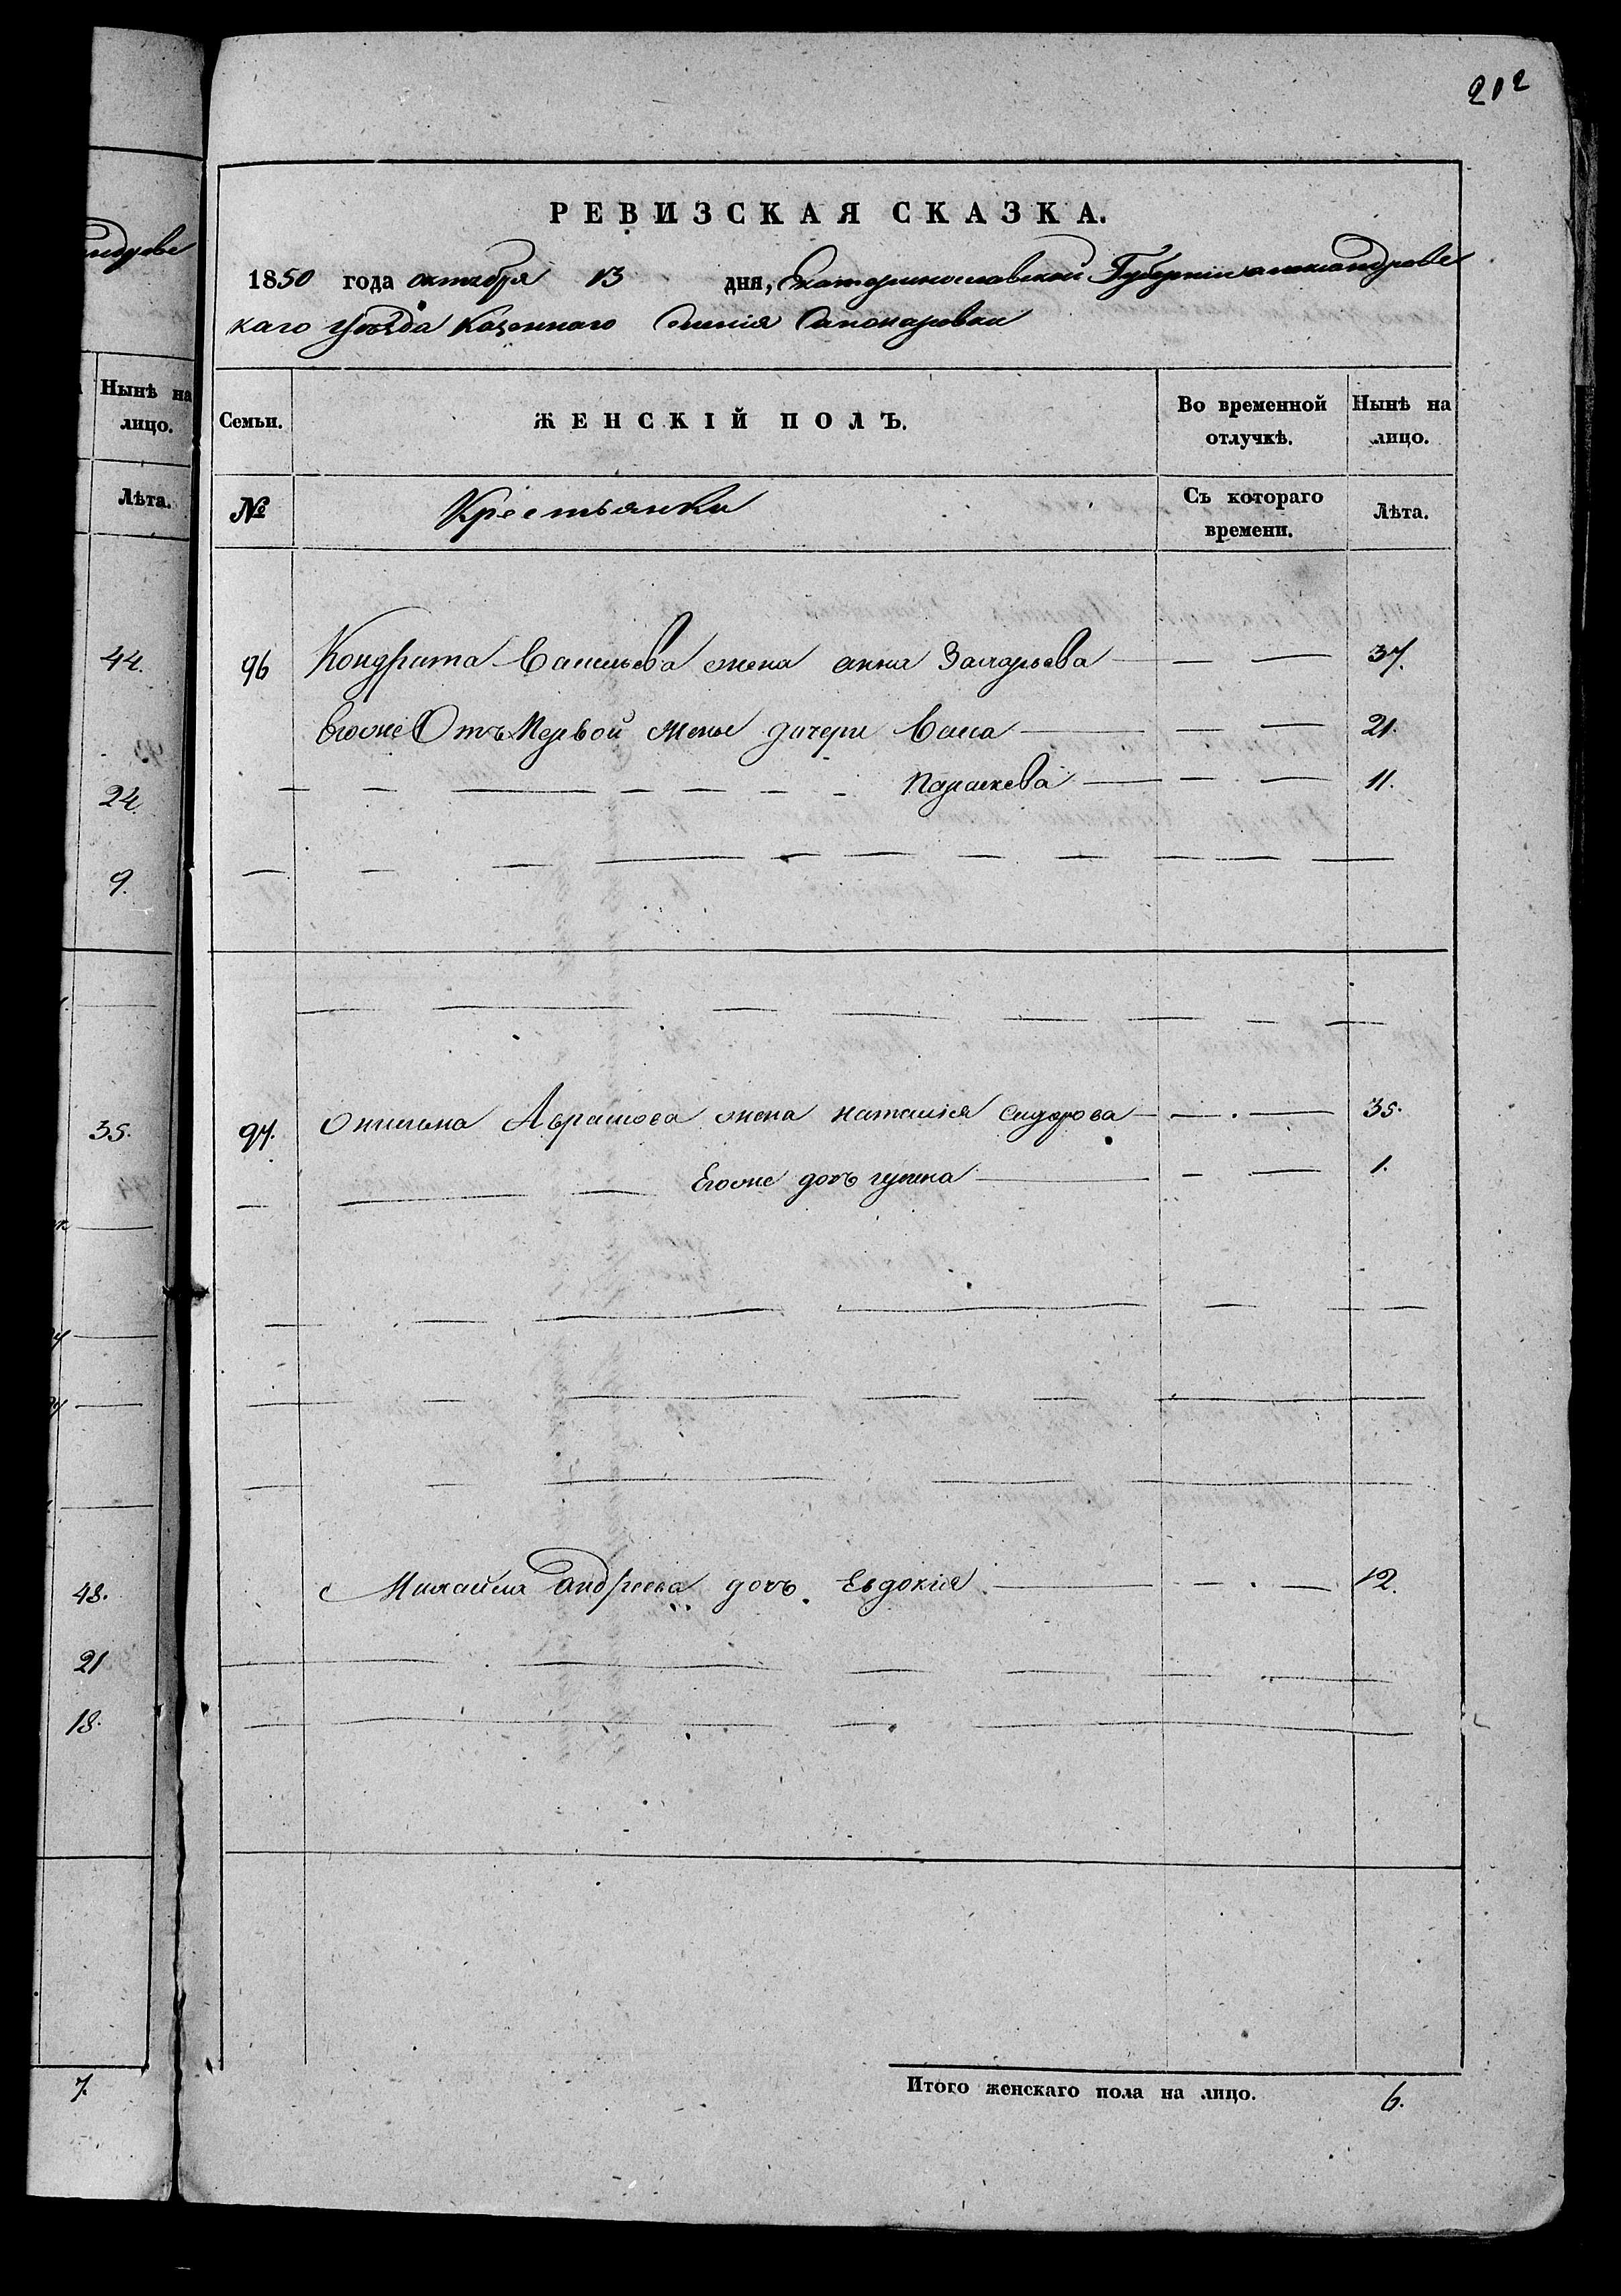 212
РЕВИЗСКАЯ СКАЗКА.
1850 года октября 13 дня, Екатеринославской Губернии александровс
каго уѣзда Казеннаго Селенія
Семьи. ЖЕНСКІЙ ПОЛЪ. Во временной отлучкѣ. Нынѣ на лицо.
№ Крестьянки Съ котораго времени. Лѣта.
96 Кондрата Васильева жена анна Захарьева 37.
Егоже Отъ Первой жены дочери Васа 21.
Параскева 11.
97. Онисима Абрамова жена наталія сидорова 35.
Егоже дочь 1.
Михайла андреева дочь Евдокія 12.
Итого женскаго пола на лицо. 6.
Нынѣ на
лицо.
Лѣта.
44.
24.
9.
35.
48.
21
18.
7.